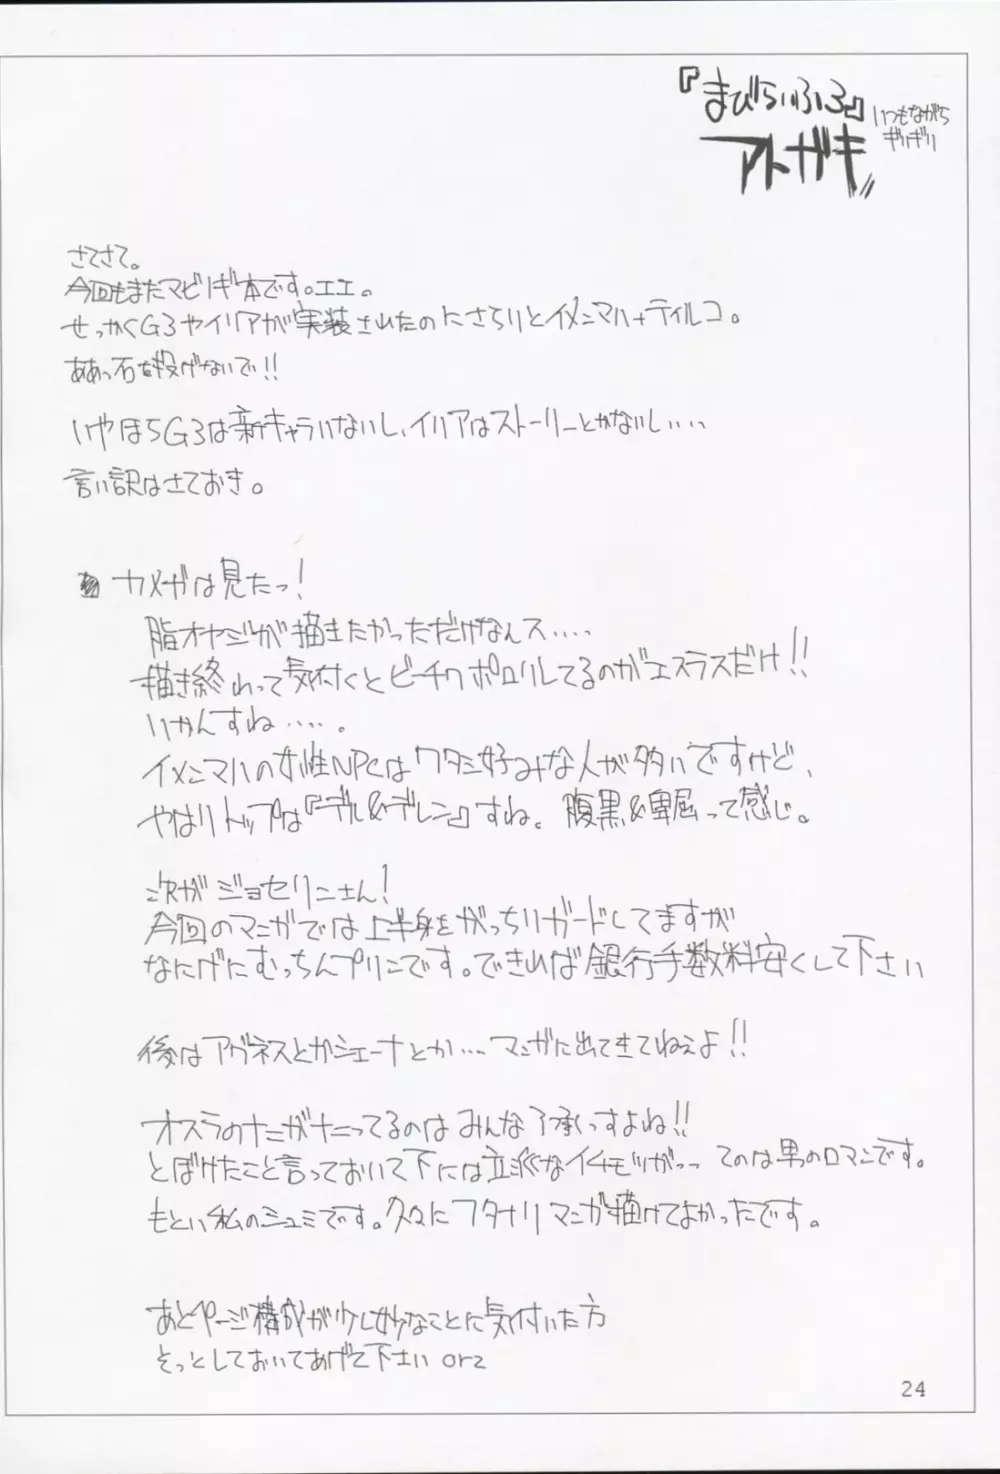 『まびらいふ3』
いつもながら
ギリギリ
アトガキ
さてさて。
今回もまたマビノギ本です。エエ。
せっかくG3やイリアが実装されたのにさらりとイメンマハ+ティルコ。
ああっ石を投げないで!!
いやほらG3は新キャラいないし、イリアはストーリーとかないし‥‥
言い訳はさておき。
カメオは見たっ!
脂オヤジが描きたかっただけなんス‥‥
描き終わって気付くとビーチクポロリしてるのがエスラスだけ!!
いかんすね‥‥。
イメンマハの女性NPCはワタシ好みな人が多いですけど、
やはりトップは『デル&デレン』すね。腹黒&卑屈って感じ。
次がジョセリンさん!
今回のマンガでは上半身をがっちりガードしてますが
なにげにむっちんプリンです。できれば銀行手数料安くして下さい
後はアグネスとかシェーナとか‥‥マンガに出てきてねぇよ!!
オスラのナニがナニってるのはみんな了承っすよね!!
とぼけたこと言っておいて下には立派なイチモツがっっ てのは男のロマンです。
もとい私のシュミです。久々にフタナリマンガ描けてよかったです。
あとページ構成が少し妙なことに気付いた方
そっとしておいてあげて下さい orz
24